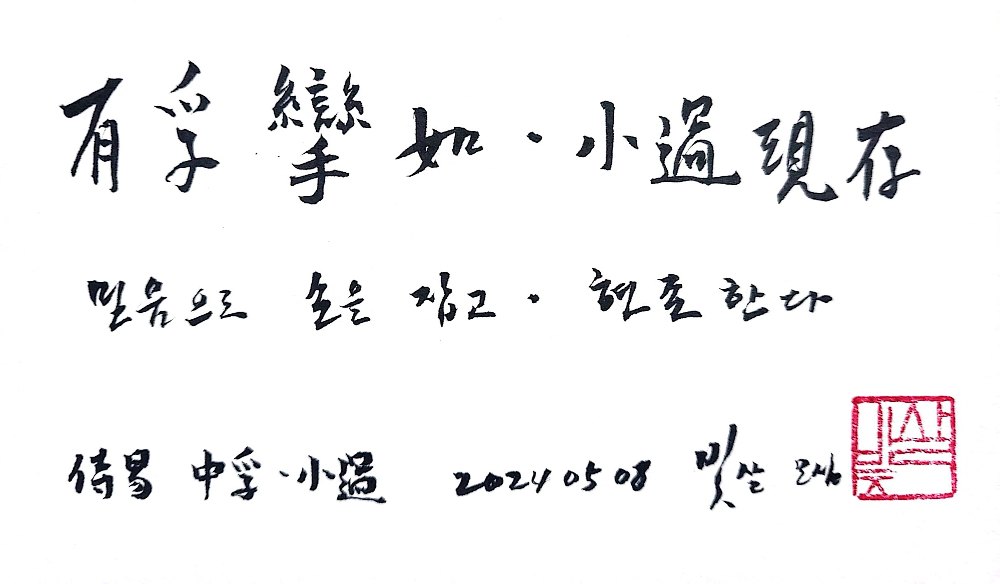 有孚攣如·小過現存
믿음으로 손을 잡고·현존한다
侍昜 中孚·小過 2024 05 08 빛살 모심
빛살